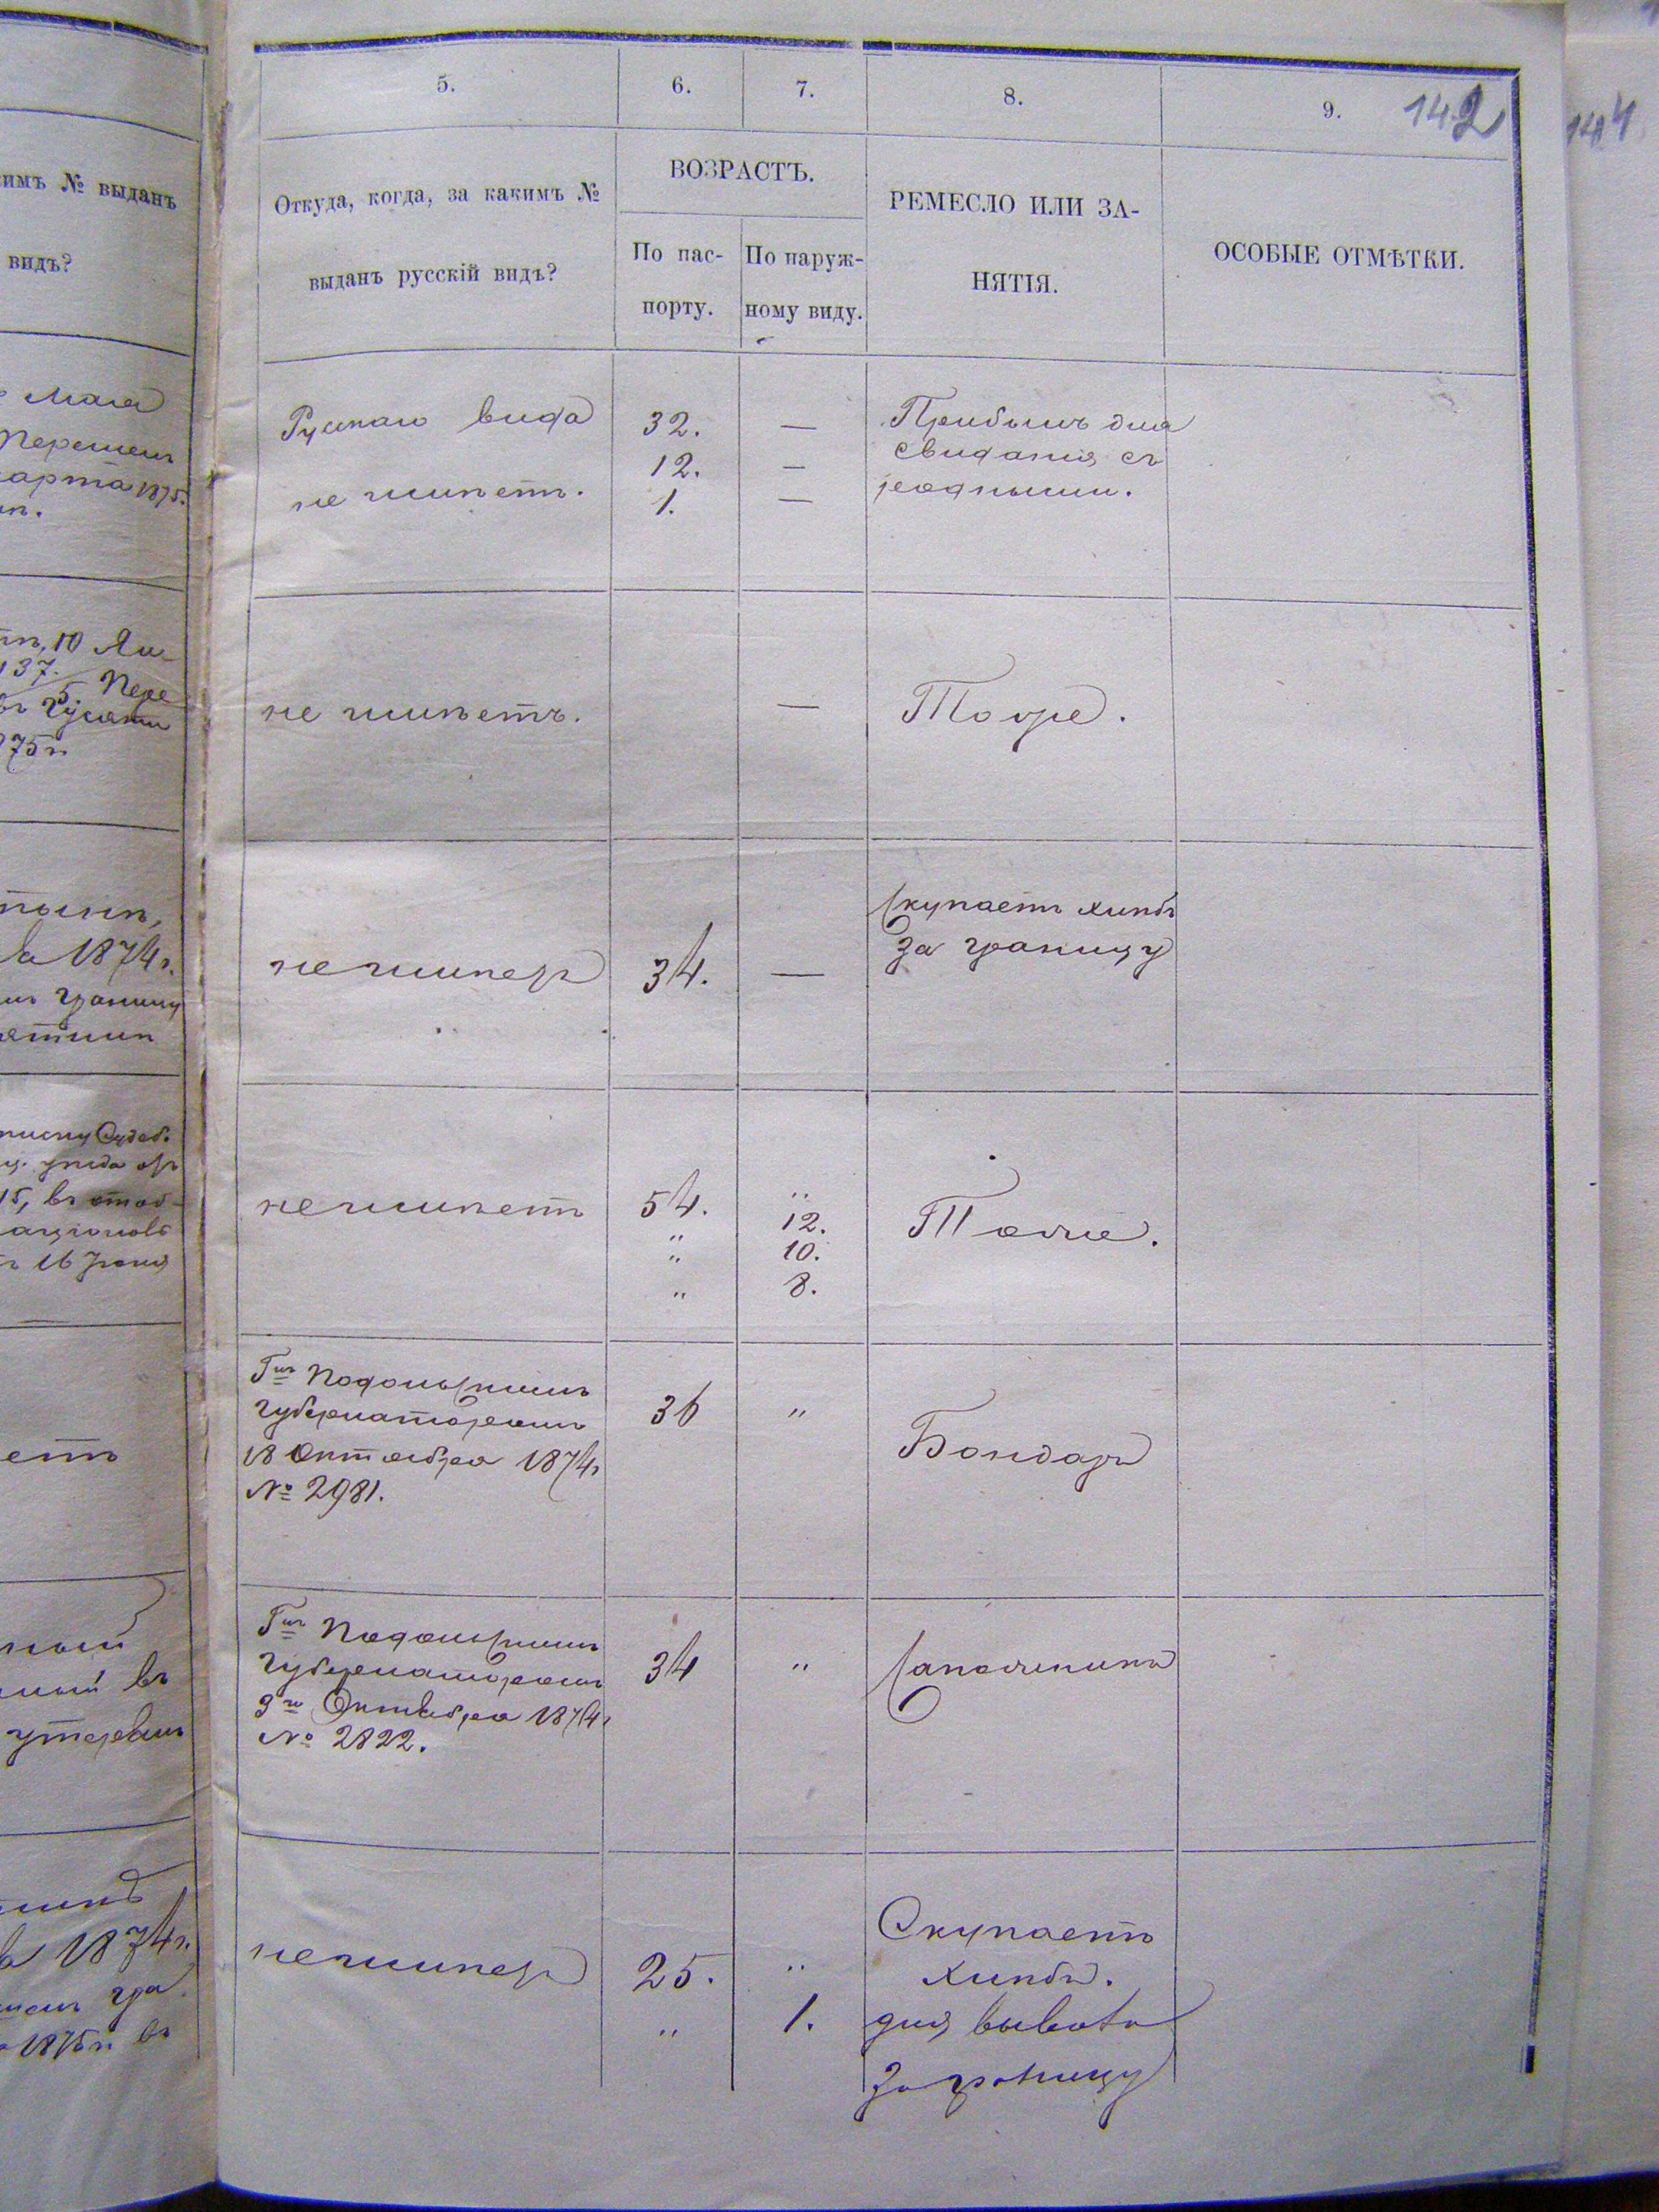 5.
6.
7.
8.
9.
142
144
Откуда, когда, за какимъ №
выданъ русскій видъ?
ВОЗРАСТЪ.
По пас-
порту.
По наруж-
ному виду.
РЕМЕСЛО ИЛИ ЗА-
НЯТІЯ.
ОСОБЫЕ ОТМѢТКИ.
имъ № выданъ
видъ?
Мая
Перешелъ
марта 1875.
10 Ян
137. Пере
5
75 г.
а 1874 г.
границу
15, въ
16 Іюня
етъ
ный
ный въ
утерянъ
1874 г.
гра
1875 г. въ
Рускаго вида
не имѣетъ.
32.
12.
1.
—
—
—
Прибылъ для
свиданія съ
родными.
не имѣетъ.
—
Тоже.
не имѣетъ
34.
—
Скупаетъ хлѣбъ
за границу
не имѣетъ
54.
"
"
"
"
12.
10.
8.
Тоже.
Гмъ Подольскимъ
Губернаторомъ
18 Октября 1874 г
№ 2981.
36
"
Бондаръ
Гмъ Подольскимъ
Губернаторомъ
9го Октября 1874 г
№ 2822.
34
"
Сапожникъ
не имѣетъ
25.
"
"
1.
Скупаетъ
хлѣбъ.
для вывоза
за границу